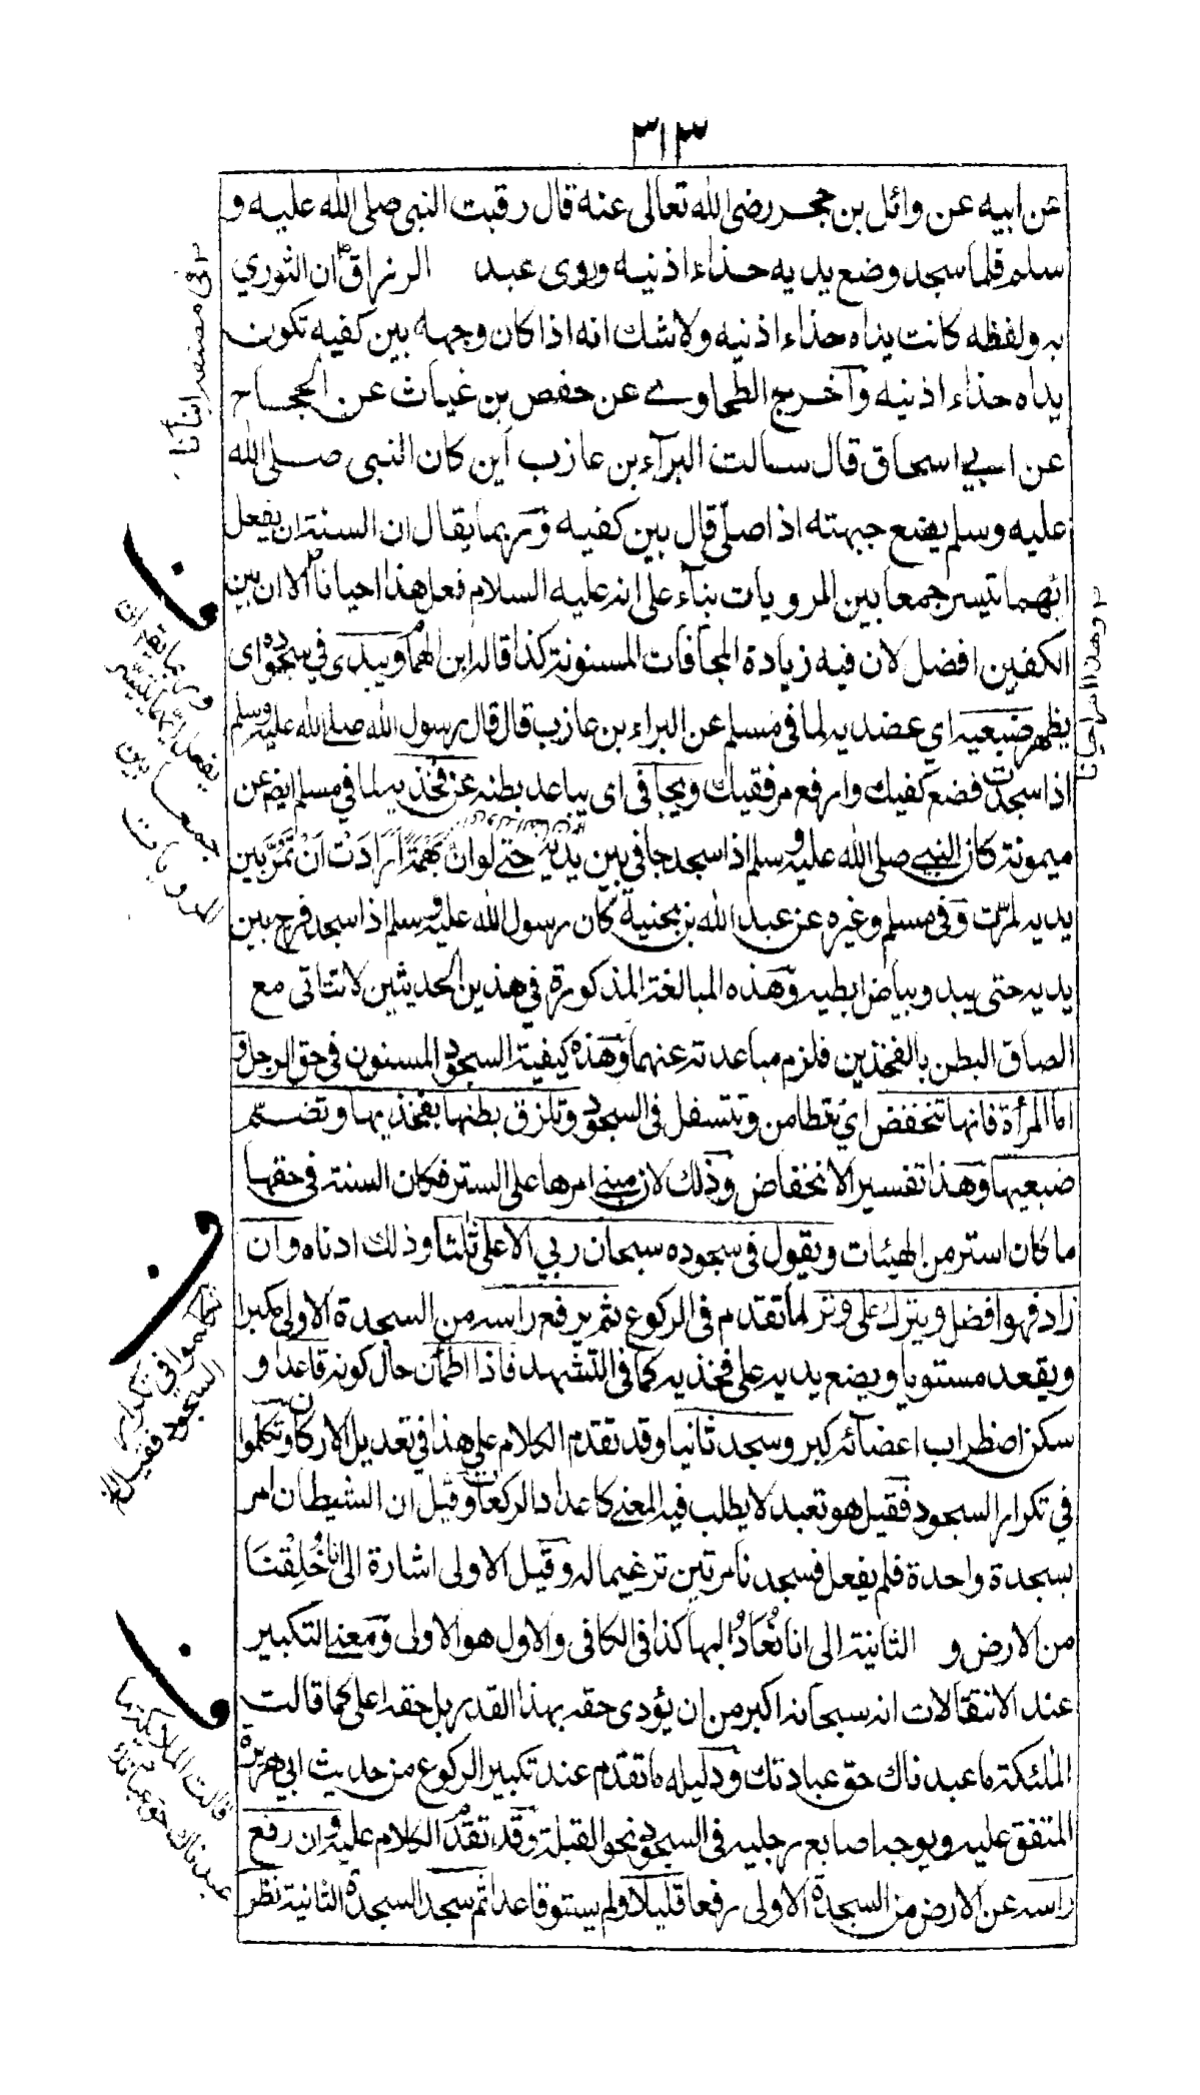 ٣١٣
عن ابيه عن وائل بن حجر رضى الله تعالى عنه قال رقبت النبى صلى الله عليه و
سلم فلما سجد وضع يديه حذاء اذنيه وروى عبد الرزاق ان الثوري
به ولفظه كانت يداه حذاء اذنيه ولا شك انه اذا كان وجهه بين كفيه تكون
يداه حذاء اذنيه وآخرج الطحاوى عن حفص بن غياث عن الحجاج
عن ابي اسحاق قال سالت البرآء بن عازب اين كان النبى صلى الله
عليه وسلم يضع جبهته اذا صلى قال بين كفيه وربما يقال ان السنة ان يفعل
ايهما تيسر جمعا بين المرويات بناء على انه عليه السلام فعل هذا احيانا الا ان بين
الكفين افضل لان فيه زيادة المجافات المسنونة كذا قاله ابن الهمام ويبدى فى سجوده اى
يظهر ضبعيه اي عضديه لما فى مسلم عن البراء بن عازب قال قال رسول الله صلى الله عليه وسلم
اذا سجدت فضع كفيك وارفع مرفقيك ويجافى اى يباعد بطنه عن فخذيه لما فى مسلم ايض عن
ميمونة كان النبي صلى الله عليه وسلم اذا سجد جافى بين يديه حتى لو ان بهمة ارادت ان تمر بين
يديه لمرت وفى مسلم وغيره عن عبد الله بن بحنية كان رسول الله عليه وسلم اذا سجد فرج بين
يديه حتى يبدو بياض ابطيه وهذه المبالغة المذكورة فى هذين الحديثين لا تتاتى مع
الصاق البطن بالفخذين فلزم مباعدته عنهما وهذه كيفية السجود المسنون فى حق الرجل و
اما المرأة فانها تنخفض اي تتطامن وتتسفل فى السجود وتلزق بطنها بفخذيها وتضم
ضبعيها وهذا تفسير الانخفاض وذلك لان مبنى امرها على الستر فكان السنة فى حقها
ما كان استر من الهيئات ويقول فى سجوده سبحان ربي الاعلى ثلثا وذلك ادناه وان
زاد فهو افضل ويترك على وتر لما تقدم فى الركوع ثم يرفع راسه من السجدة الاولى مكبرا
ويقعد مستويا ويضع يديه على فخذيه كما فى التشهد فاذا اطمأن حال كونه قاعدا و
سكن اضطراب اعضائه كبر وسجد ثانيا وقد تقدم الكلام على هذا فى تعديل الاركان وتكلموا
فى تكرار السجود فقيل هو تعبد لا يطلب فيه المعنى كاعداد الركعات وقيل ان الشيطان امر
بسجدة واحدة فلم يفعل فسجدنا مرتين ترغيما له وقيل الاولى اشارة الى انا خُلِقْنَا
من الارض و الثانية الى انا نُعَادُ اليها كذا فى الكافى والاول هو الاولى ومعنى التكبير
عند الانتقالات انه سبحانه اكبر من ان يؤدى حقه بهذا القدر بل حقه اعلى كما قالت
الملئكة ما عبدناك حق عبادتك ودليله ما تقدم عند تكبير الركوع من حديث ابي هريرة
المتفق عليه ويوجه اصابع رجليه فى السجود نحو القبلة وقد تقدم الكلام عليه وان رفع
راسه عن الارض من السجدة الاولى رفعا قليلا ولم يستو قاعدا ثم سجد السجدة الثانية نظر
فى مصنفه انبأنا
وهذا احيانا
ف
وربما يقال ان
يفعل ايهما تيسر
جمعا بين
المرويات
ف
تكلموا فى تكرار
السجود فقيل
ف
قالت الملائكة ما
عبدناك حق عبادتك